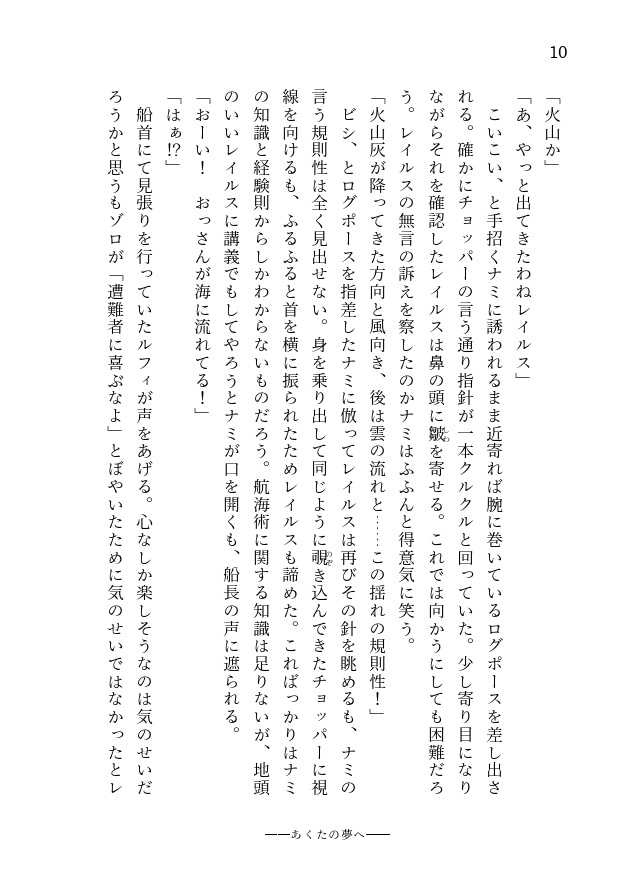 10
「火山か」
「あ、やっと出てきたわねレイルス」
　こいこい、と手招くナミに誘われるまま近寄れば腕に巻いているログポースを差し出さ
れる。確かにチョッパーの言う通り指針が一本クルクルと回っていた。少し寄り目になり
ながらそれを確認したレイルスは鼻の頭に皺しわを寄せる。これでは向かうにしても困難だろ
う。レイルスの無言の訴えを察したのかナミはふふんと得意気に笑う。
「火山灰が降ってきた方向と風向き、後は雲の流れと……この揺れの規則性！」
　ビシ、とログポースを指差したナミに倣ってレイルスは再びその針を眺めるも、ナミの
言う規則性は全く見出せない。身を乗り出して同じように覗のぞき込んできたチョッパーに視
線を向けるも、ふるふると首を横に振られたためレイルスも諦めた。こればっかりはナミ
の知識と経験則からしかわからないものだろう。航海術に関する知識は足りないが、地頭
のいいレイルスに講義でもしてやろうとナミが口を開くも、船長の声に遮られる。
「おーい！　おっさんが海に流れてる！」
「はぁ!?」
　船首にて見張りを行っていたルフィが声をあげる。心なしか楽しそうなのは気のせいだ
ろうかと思うもゾロが「遭難者に喜ぶなよ」とぼやいたために気のせいではなかったとレ
――あくたの夢へ――